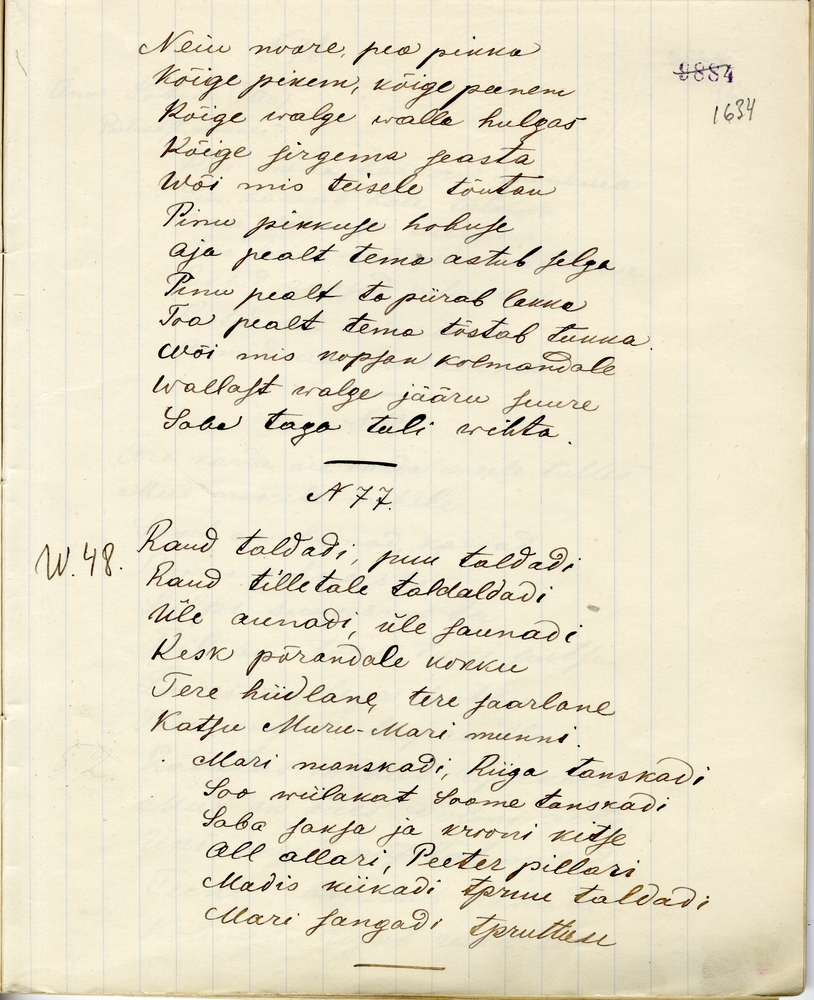 Neiu noore, pea pikka
9884
Kõige pikem, kõige peenem
1634
Kõige walge walla hulgas
Kõige sirgema seasta
Wõi mis teisele tõutan
Pinu pikkuse hobuse
Aja pealt tema astub selga
Pinu pealt ta piirab lakka
Toa pealt tema tõstab tukka.
Wõi mis kopsan kolmandale
Wallast walge jääru suure
Saba taga tuli wihta.
N 77.
W. 48.
Raud taldadi, puu taldadi
Raud tilletale taldaldadi
Üle aunadi, üle saunadi
Kesk põrandale kokku
Tere hiidlane, tere saarlane
Katsu Muru-Mari munni.
Mari manskadi, Riiga tanskadi
Soo wiilakat Soome tanskadi
Saba saksa ja krooni kitse
All allari, Peeter pillari
Madis kiikadi tpruu taldadi
Mari sangadi